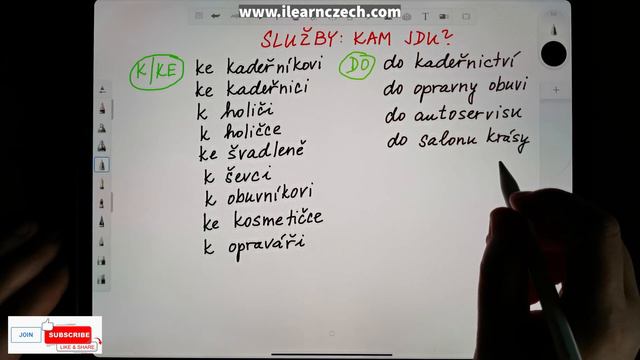 www.ilearnczech.com
SLUŽBY: KAM JDU?
K/KE
ke kadeřníkovi
ke kadeřnici
k holiči
k holičce
ke švadleně
k ševci
k obuvníkovi
ke kosmetičce
k opraváři
DO
do kadeřnictví
do opravny obuvi
do autoservisu
do salonu krásy
JOIN
SUBSCRIBE
LIKE & SHARE